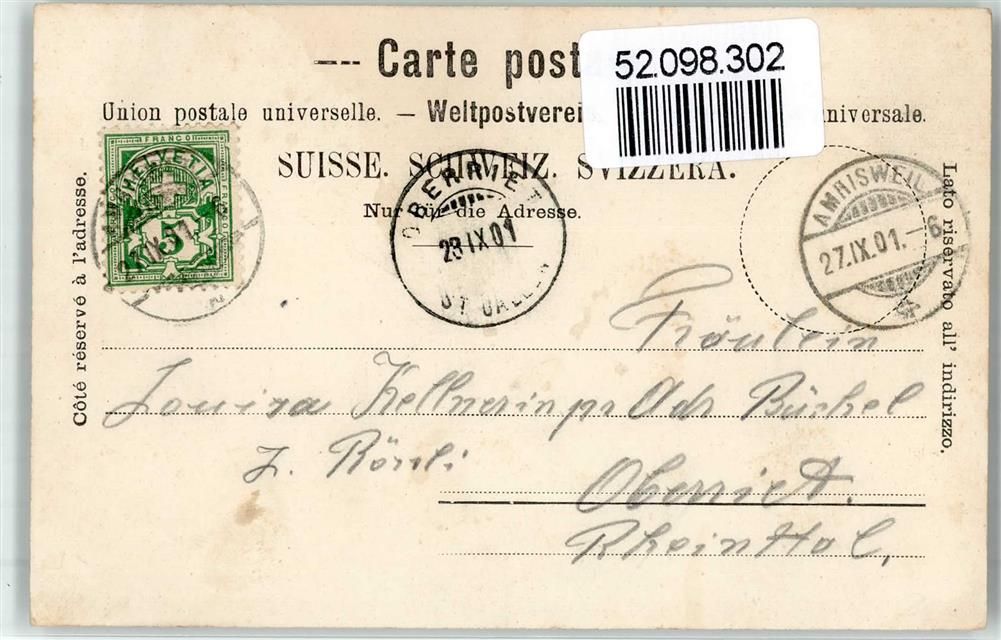 --- Carte post
52.098.302
Union postale universelle. — Weltpostverein universale.
SUISSE. SCHWEIZ. SVIZZERA.
Nur für die Adresse.
Côté réservé à l'adresse.
Lato riservato all' indirizzo.
FRANCO
HELVETIA
5
OBERRIET
28 IX 01
ST GALLEN
AMRISWEIL
27.IX.01.-6
Fräulein
Louisa Kellnerin pr Adr Büchel
z. Rössli
Oberriet.
Rheinthal,